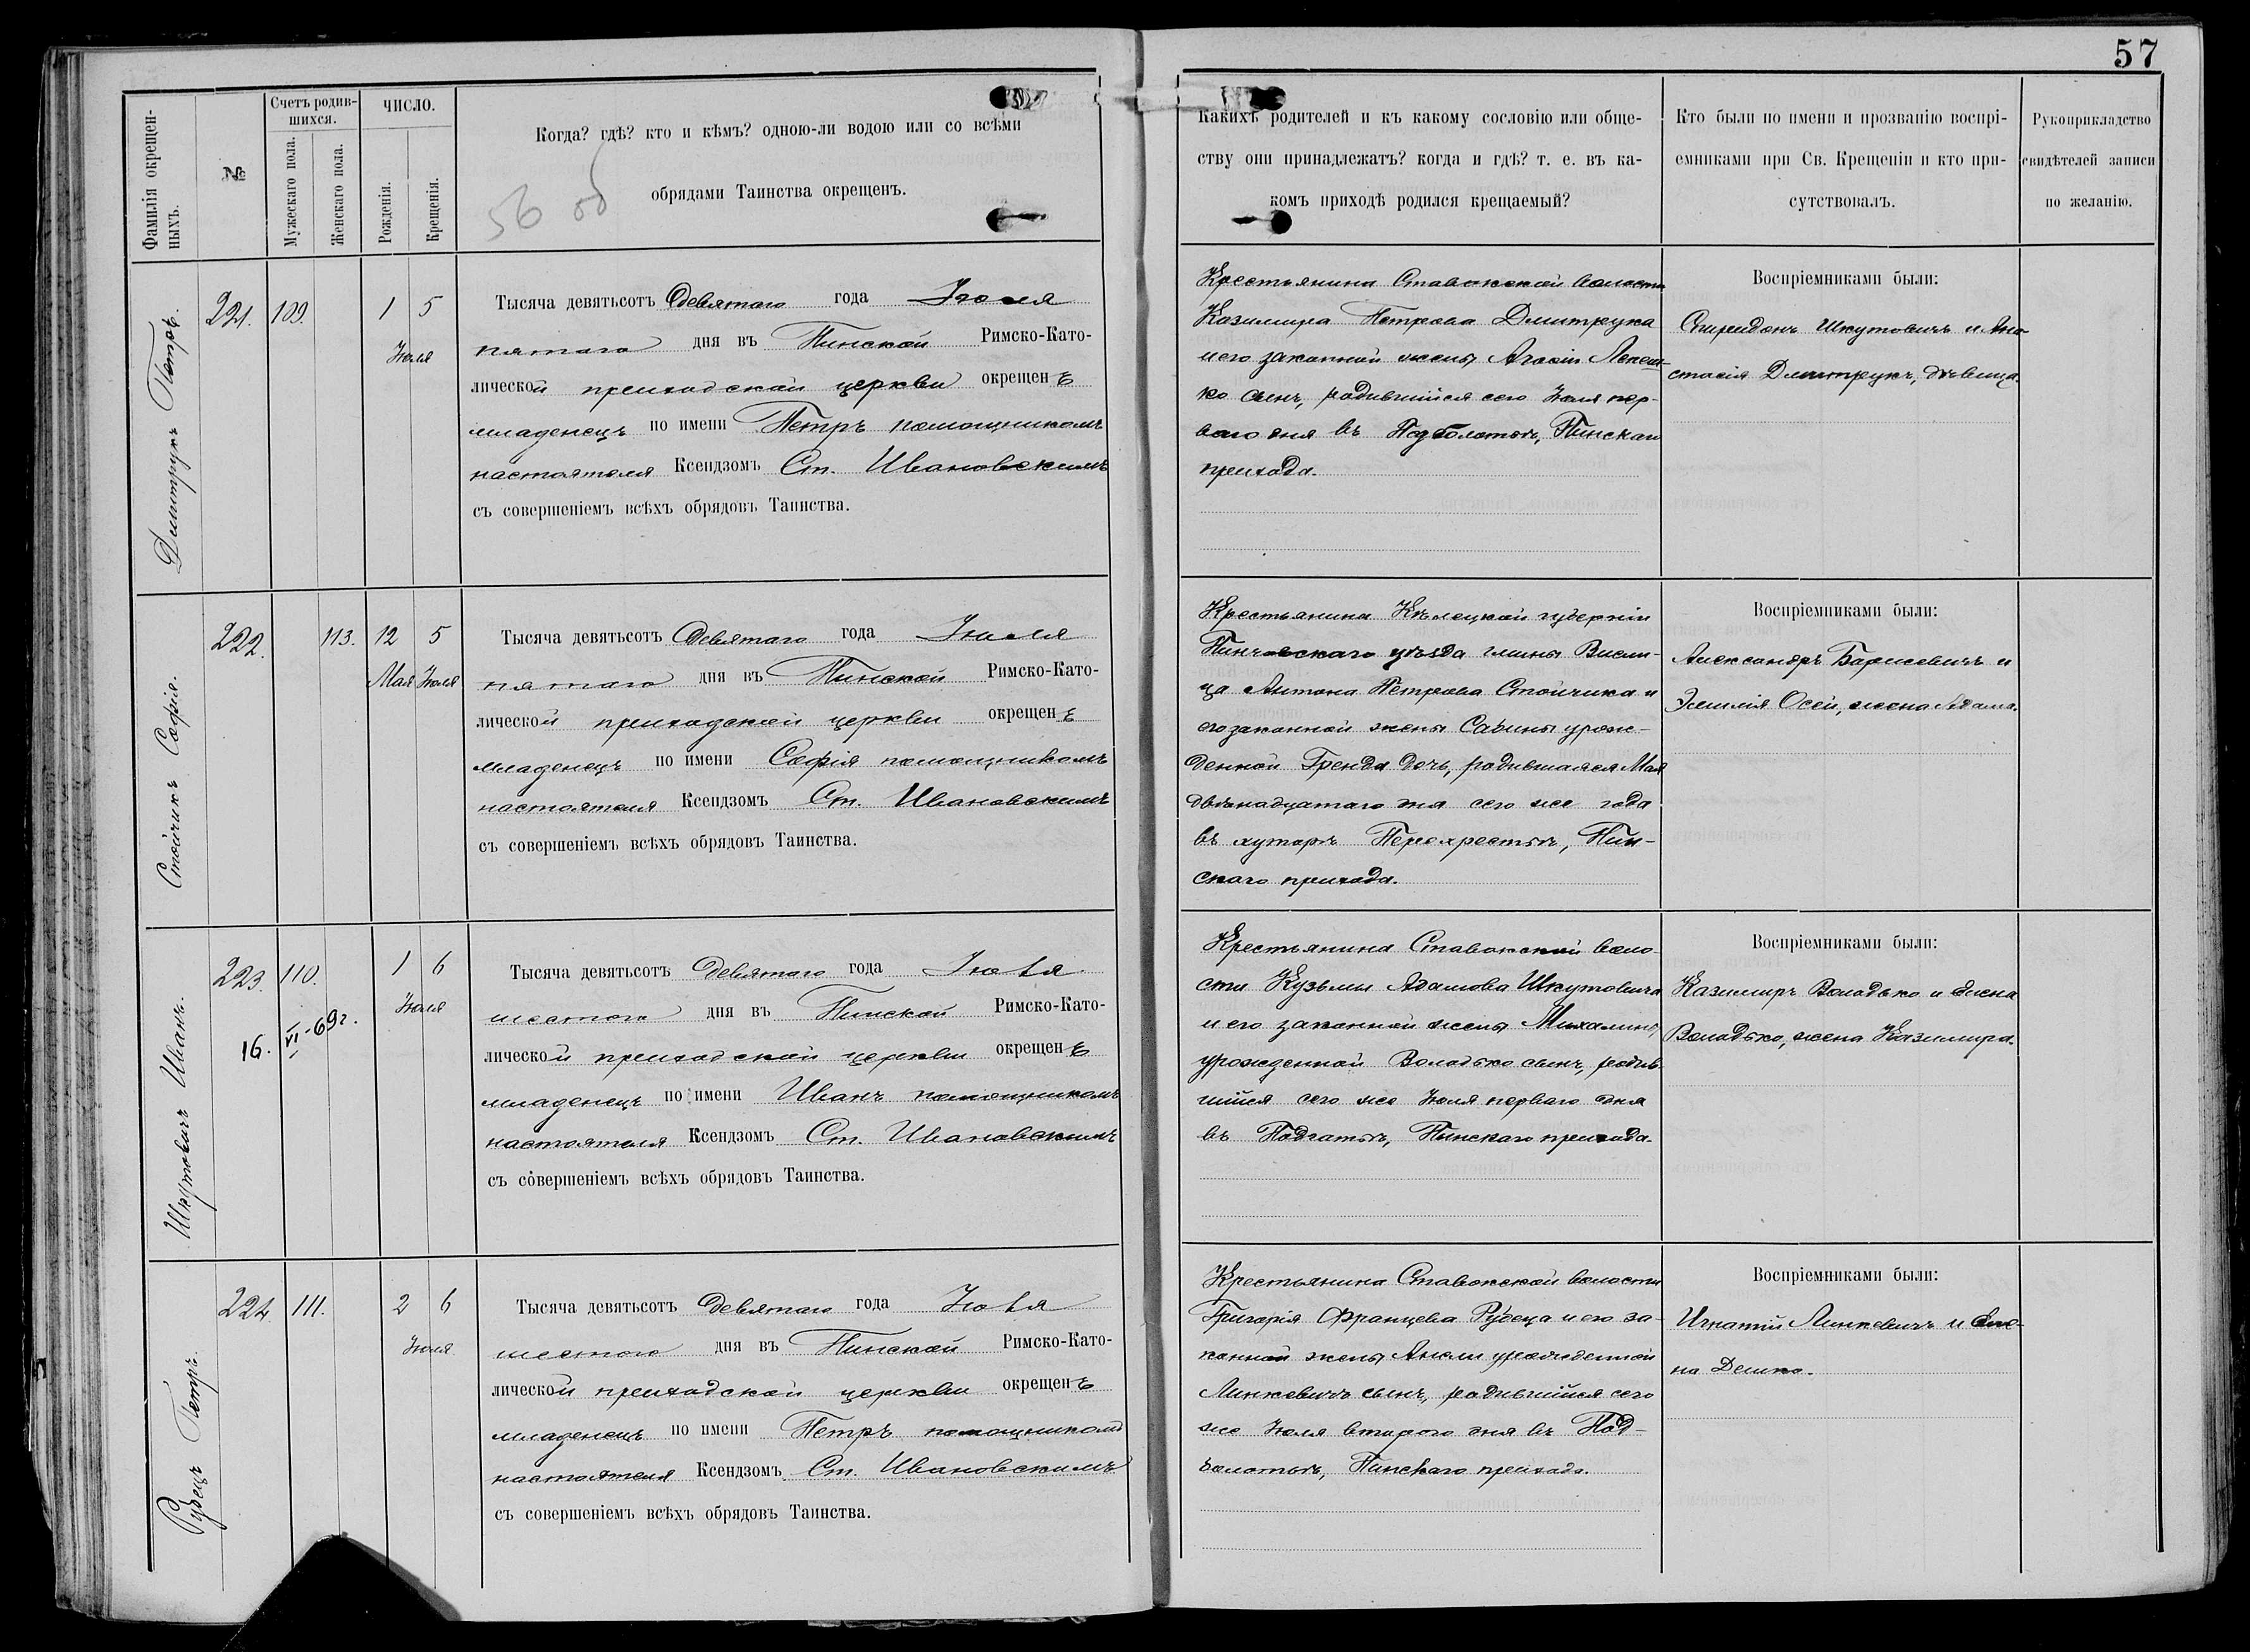 57
Фамилія окрещен-
ныхъ.
№
Счетъ родив-
шихся.
Мужескаго пола.
Женскаго пола.
ЧИСЛО.
Рожденія.
Крещенія.
Когда? гдѣ? кто и кѣмъ? одною-ли водою или со всѣми
обрядами Таинства окрещенъ.
56 об
Какихъ родителей и къ какому сословію или обще-
ству они принадлежатъ? когда и гдѣ? т. е. въ ка-
комъ приходѣ родился крещаемый?
Кто были по имени и прозванію воспрі-
емниками при Св. Крещеніи и кто при-
сутствовалъ.
Рукоприкладство
свидѣтелей записи
по желанію.
Дмитрукъ Петръ.
221. 109. 1 5
Іюля
Тысяча девятьсотъ девятаго года Іюля
пятаго дня въ Пинской Римско-Като-
лической приходской церкви окрещенъ
младенецъ по имени Петръ помощникомъ
настоятеля Ксендзомъ Ст. Ивановскимъ
съ совершеніемъ всѣхъ обрядовъ Таинства.
Крестьянина Ставокской волости
Казимира Петрова Дмитрука
и его законной жены Агафіи
сынъ, родившійся сего Іюля пер-
ваго дня въ Подболотьѣ, Пинскаго
прихода.
Воспріемниками были:
Спиридонъ Шкутовичъ и Ана-
стасія Дмитрукъ, дѣвица.
Стойчикъ Софія.
222. 113. 12 5
Мая Іюля
Тысяча девятьсотъ девятаго года Іюля
пятаго дня въ Пинской Римско-Като-
лической приходской церкви окрещенъ
младенецъ по имени Софія помощникомъ
настоятеля Ксендзомъ Ст. Ивановскимъ
съ совершеніемъ всѣхъ обрядовъ Таинства.
Крестьянина Кѣлецкой губерніи
Пинчовскаго уѣзда гмины Висли-
ца Антона Петрова Стойчика и
его законной жены Сабины урож-
денной Гренда дочь, родившаяся Мая
двѣнадцатаго дня сего же года
въ хуторѣ Перехрестьѣ, Пин-
скаго прихода.
Воспріемниками были:
Александръ Борисевичъ и
Эмилія Осей, жена Адама.
Шкутовичъ Иванъ.
223. 110. 1 6
Іюля
16. VI-69г.
Тысяча девятьсотъ девятаго года Іюля
шестого дня въ Пинской Римско-Като-
лической приходской церкви окрещенъ
младенецъ по имени Иванъ помощникомъ
настоятеля Ксендзомъ Ст. Ивановскимъ
съ совершеніемъ всѣхъ обрядовъ Таинства.
Крестьянина Ставокской воло-
сти Кузьмы Адамова Шкутовича
и его законной жены Михалины,
урожденной Володько сынъ, родив-
шійся сего же Іюля перваго дня
въ Подгатьѣ, Пинскаго прихода.
Воспріемниками были:
Казимиръ Володько и Елена
Володько, жена Казимира.
Рубецъ Петръ.
224 111. 2 6
Іюля
Тысяча девятьсотъ девятаго года Іюля
шестого дня въ Пинской Римско-Като-
лической приходской церкви окрещенъ
младенецъ по имени Петръ помощникомъ
настоятеля Ксендзомъ Ст. Ивановскимъ
съ совершеніемъ всѣхъ обрядовъ Таинства.
Крестьянина Ставокской волости
Григорія Францева Рубеца и его за-
конной жены Анели урожденной
Линкевичъ сынъ, родившійся сего
же Іюля второго дня въ Под-
болотьѣ, Пинскаго прихода.
Воспріемниками были:
Игнатій Линкевичъ и Еле-
на Демко.